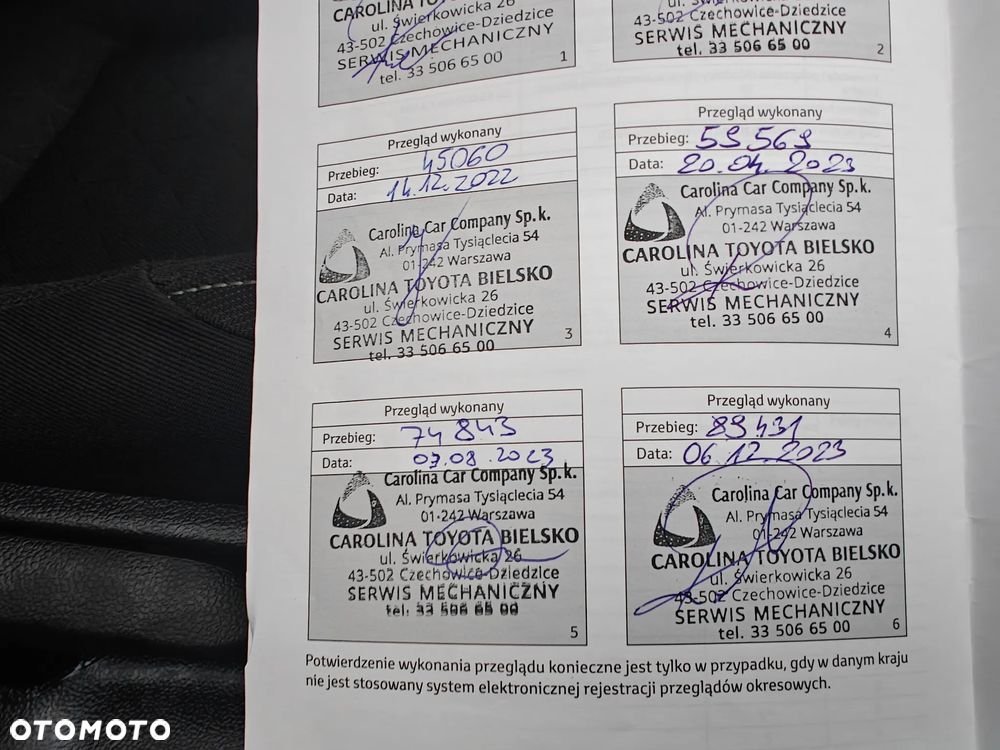 CAROLINA TO
ul. Świerkowicka 26
43-502 Czechowice-Dziedzice
SERWIS MECHANICZNY
tel. 33 506 65 00
1
43-502 Czechowice-Dziedzice
SERWIS MECHANICZNY
tel. 33 506 65 00
2
Przegląd wykonany
Przebieg: 45060
Data: 14.12.2022
Carolina Car Company Sp.k.
Al. Prymasa Tysiąclecia 54
01-242 Warszawa
CAROLINA TOYOTA BIELSKO
ul. Świerkowicka 26
43-502 Czechowice-Dziedzice
SERWIS MECHANICZNY
tel. 33 506 65 00
3
Przegląd wykonany
Przebieg: 59569
Data: 20.04.2023
Carolina Car Company Sp.k.
Al. Prymasa Tysiąclecia 54
01-242 Warszawa
CAROLINA TOYOTA BIELSKO
ul. Świerkowicka 26
43-502 Czechowice-Dziedzice
SERWIS MECHANICZNY
tel. 33 506 65 00
4
Przegląd wykonany
Przebieg: 74843
Data: 07.08.2023
Carolina Car Company Sp.k.
Al. Prymasa Tysiąclecia 54
01-242 Warszawa
CAROLINA TOYOTA BIELSKO
ul. Świerkowicka 26
43-502 Czechowice-Dziedzice
SERWIS MECHANICZNY
tel. 33 506 65 00
5
Przegląd wykonany
Przebieg: 89431
Data: 06.12.2023
Carolina Car Company Sp.k.
Al. Prymasa Tysiąclecia 54
01-242 Warszawa
CAROLINA TOYOTA BIELSKO
ul. Świerkowicka 26
43-502 Czechowice-Dziedzice
SERWIS MECHANICZNY
tel. 33 506 65 00
6
Potwierdzenie wykonania przeglądu konieczne jest tylko w przypadku, gdy w danym kraju
nie jest stosowany system elektronicznej rejestracji przeglądów okresowych.
OTOMOTO